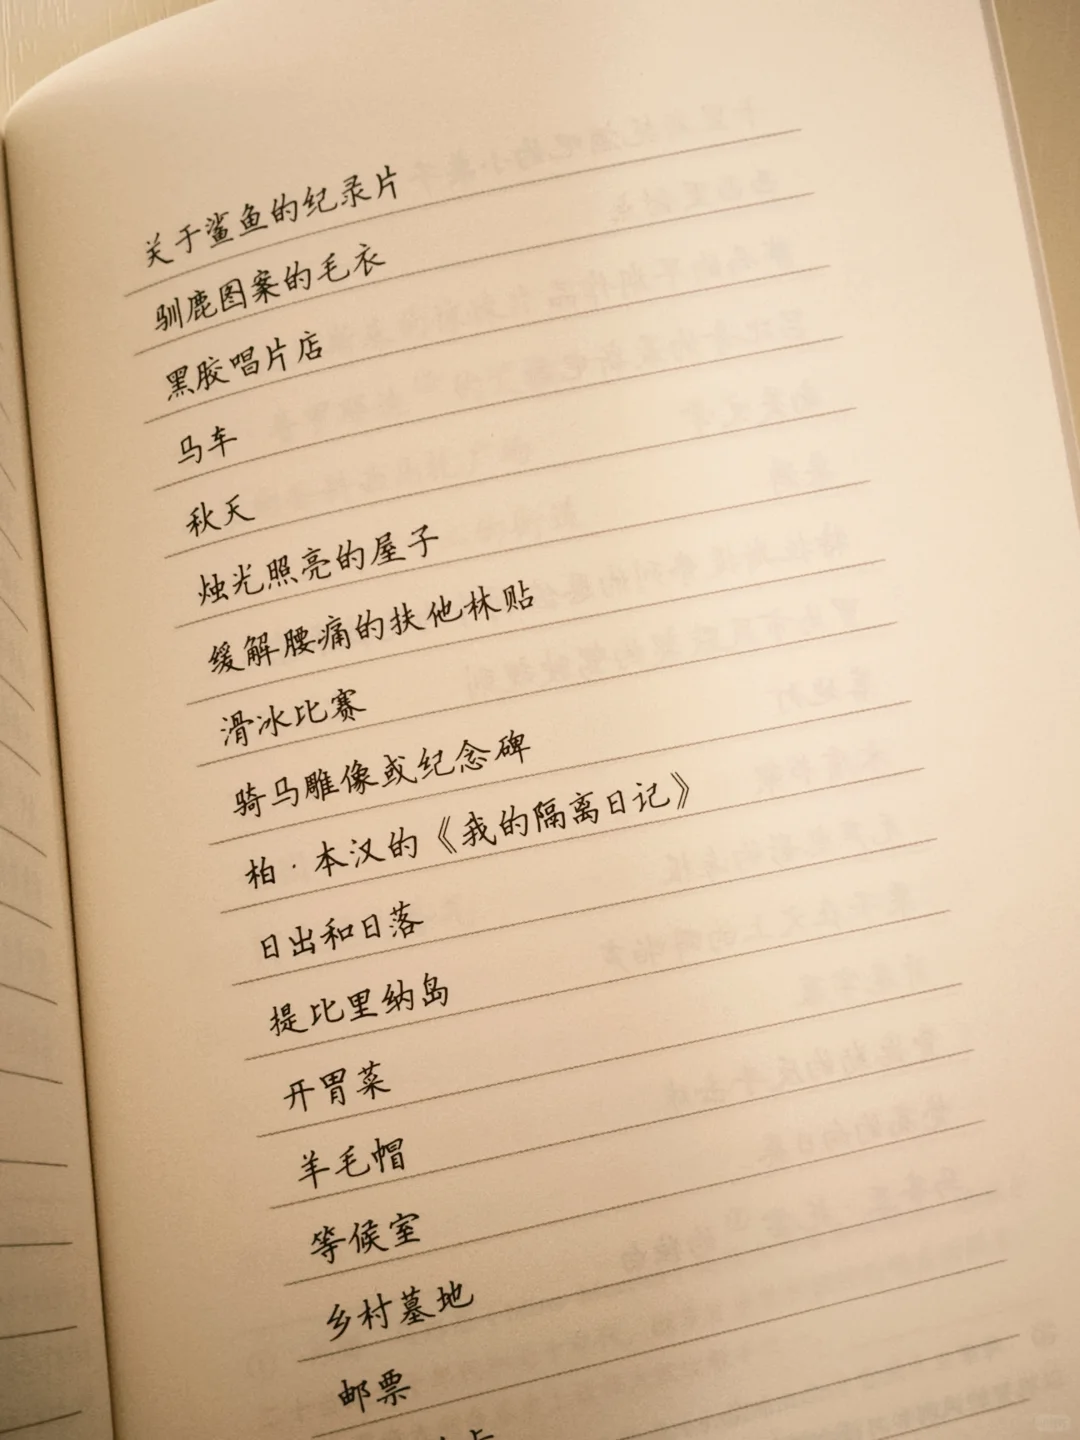 关于鲨鱼的纪录片
驯鹿图案的毛衣
黑胶唱片店
马车
秋天
烛光照亮的屋子
缓解腰痛的扶他林贴
滑冰比赛
骑马雕像或纪念碑
柏·本汉的《我的隔离日记》
日出和日落
提比里纳岛
开胃菜
羊毛帽
等候室
乡村墓地
邮票